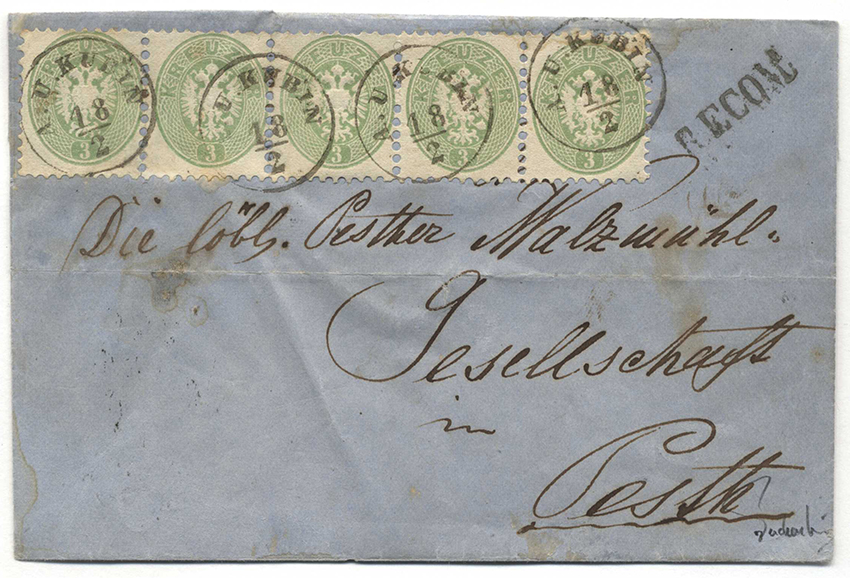 KREUZER KREUZER KREUZER KREUZER KREUZER
3 3 3 3 3
A.U.KUBIN 18/2
U KUBIN 18/2
A.U.KUBIN 18/2
A.U.KUBIN 18/2
RECOM
Die löbl. Pesther Walzmühl=
Gesellschaft
in
Pesth